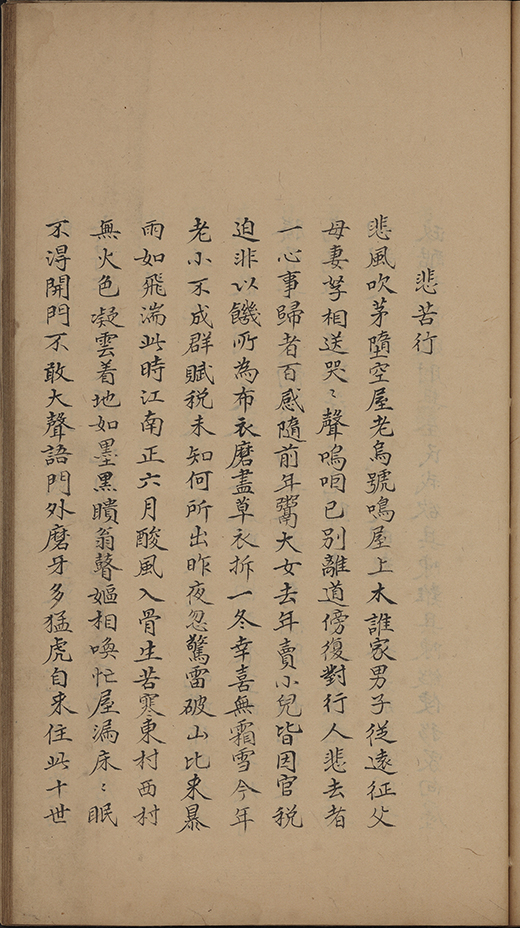 悲苦行
悲風吹茅墮空屋老烏號鳴屋上木誰家男子從遠征父
母妻孥相送哭〻聲嗚咽已別離道傍復對行人悲去者
一心事歸者百感隨前年鬻大女去年賣小兒皆因官稅
迫非以饑所為布衣磨盡草衣拆一冬幸喜無霜雪今年
老小不成群賦稅未知何所出昨夜忽驚雷破山比來暴
雨如飛湍此時江南正六月酸風入骨生苦寒東村西村
無火色凝雲着地如墨黑瞶翁瞽嫗相喚忙屋漏床〻眠
不淂開門不敢大聲語門外磨牙多猛虎自来住此十世